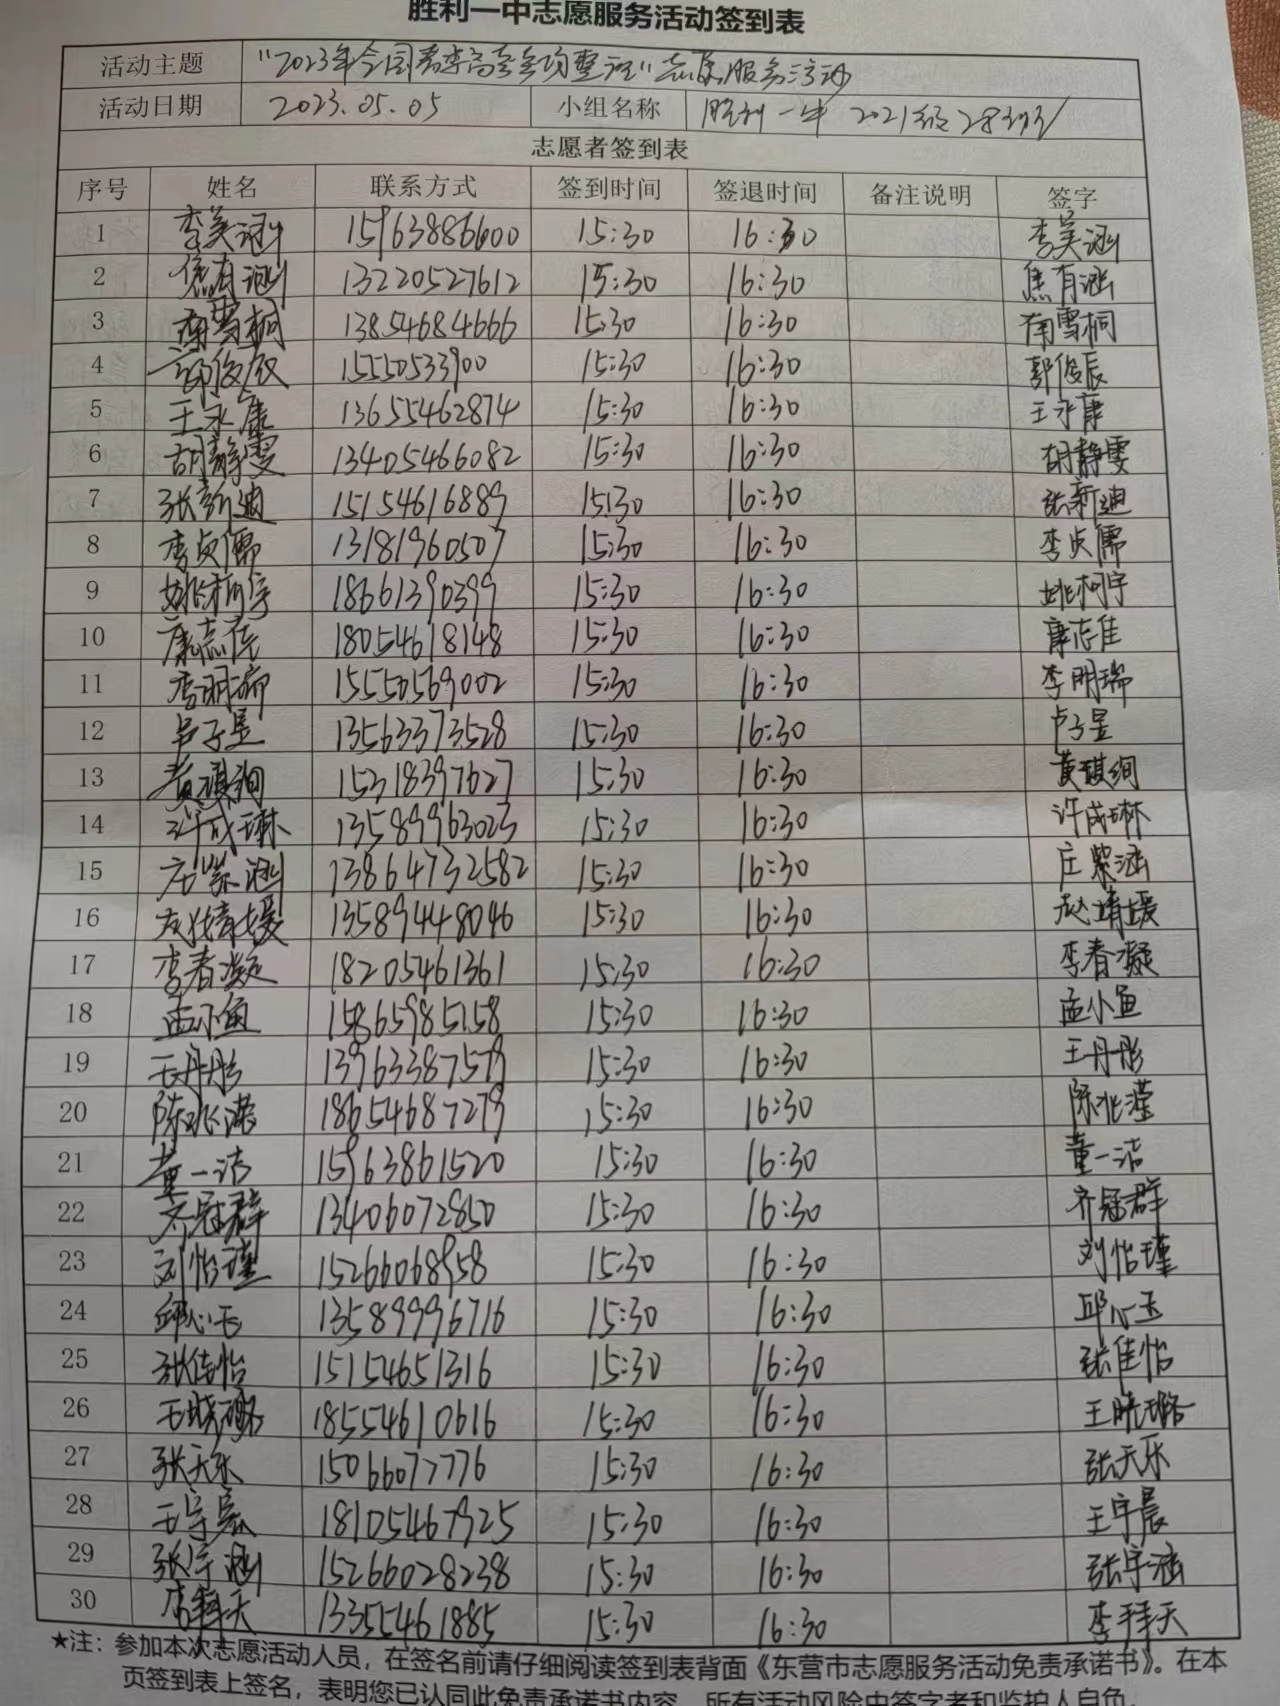 胜利一中志愿服务活动签到表
活动主题 "2023年全国春季高考考场整理"志愿服务活动
活动日期 2023.05.05 小组名称 胜利一中 2021级28班
志愿者签到表
序号 姓名 联系方式 签到时间 签退时间 备注说明 签字
1 李美涵 15963886600 15:30 16:30 李美涵
2 焦有涵 13220527612 15:30 16:30 焦有涵
3 雪桐 13854684666 15:30 16:30 雪桐
4 郭俊辰 15550533900 15:30 16:30 郭俊辰
5 王永康 13655462874 15:30 16:30 王永康
6 胡静雯 13405466082 15:30 16:30 胡静雯
7 张新迪 15154616889 15:30 16:30 张新迪
8 李贞儒 13181960507 15:30 16:30 李贞儒
9 姚柯宇 18661390399 15:30 16:30 姚柯宇
10 康志佳 18054618148 15:30 16:30 康志佳
11 李明瑞 15550569002 15:30 16:30 李明瑞
12 卢子昱 13563373528 15:30 16:30 卢子昱
13 黄琪绚 15318397627 15:30 16:30 黄琪绚
14 许成琳 13589963023 15:30 16:30 许成琳
15 庄紫涵 13864732582 15:30 16:30 庄紫涵
16 赵靖媛 13589448046 15:30 16:30 赵靖媛
17 李春凝 18205461361 15:30 16:30 李春凝
18 孟小鱼 15865985158 15:30 16:30 孟小鱼
19 王丹彤 13963387579 15:30 16:30 王丹彤
20 陈兆滢 18654687279 15:30 16:30 陈兆滢
21 董一洁 15963861520 15:30 16:30 董一洁
22 齐冠群 13406072850 15:30 16:30 齐冠群
23 刘怡瑾 15266068958 15:30 16:30 刘怡瑾
24 邱心玉 13589996716 15:30 16:30 邱心玉
25 张佳怡 15154651316 15:30 16:30 张佳怡
26 王晓璐 18554610616 15:30 16:30 王晓璐
27 张天乐 15066077776 15:30 16:30 张天乐
28 王宇晨 18105467925 15:30 16:30 王宇晨
29 张宇涵 15266028238 15:30 16:30 张宇涵
30 李拜天 13355461885 15:30 16:30 李拜天
★注：参加本次志愿活动人员，在签名前请仔细阅读签到表背面《东营市志愿服务活动免责承诺书》。在本
页签到表上签名，表明您已认同此免责承诺书内容，所有活动风险由签字者和监护人自负。